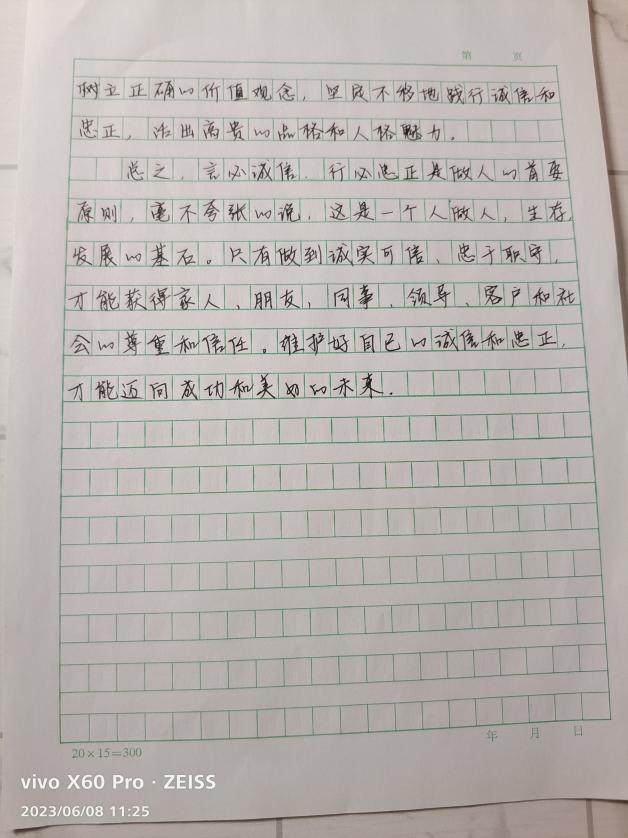 第 页
树立正确的价值观念，坚定不移地践行诚信和
忠正，活出高贵的品格和人格魅力。
总之，言必诚信，行必忠正是做人的首要
原则，毫不夸张的说，这是一个人做人，生存，
发展的基石。只有做到诚实可信、忠于职守，
才能获得家人、朋友，同事、领导、客户和社
会的尊重和信任。维护好自己的诚信和忠正，
才能迈向成功和美好的未来。
20×15=300
年 月 日
vivo X60 Pro · ZEISS
2023/06/08 11:25